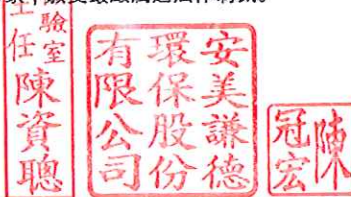 驗室
主任
陳資聰
安美謙德
環保股份
有限公司
陳
冠宏